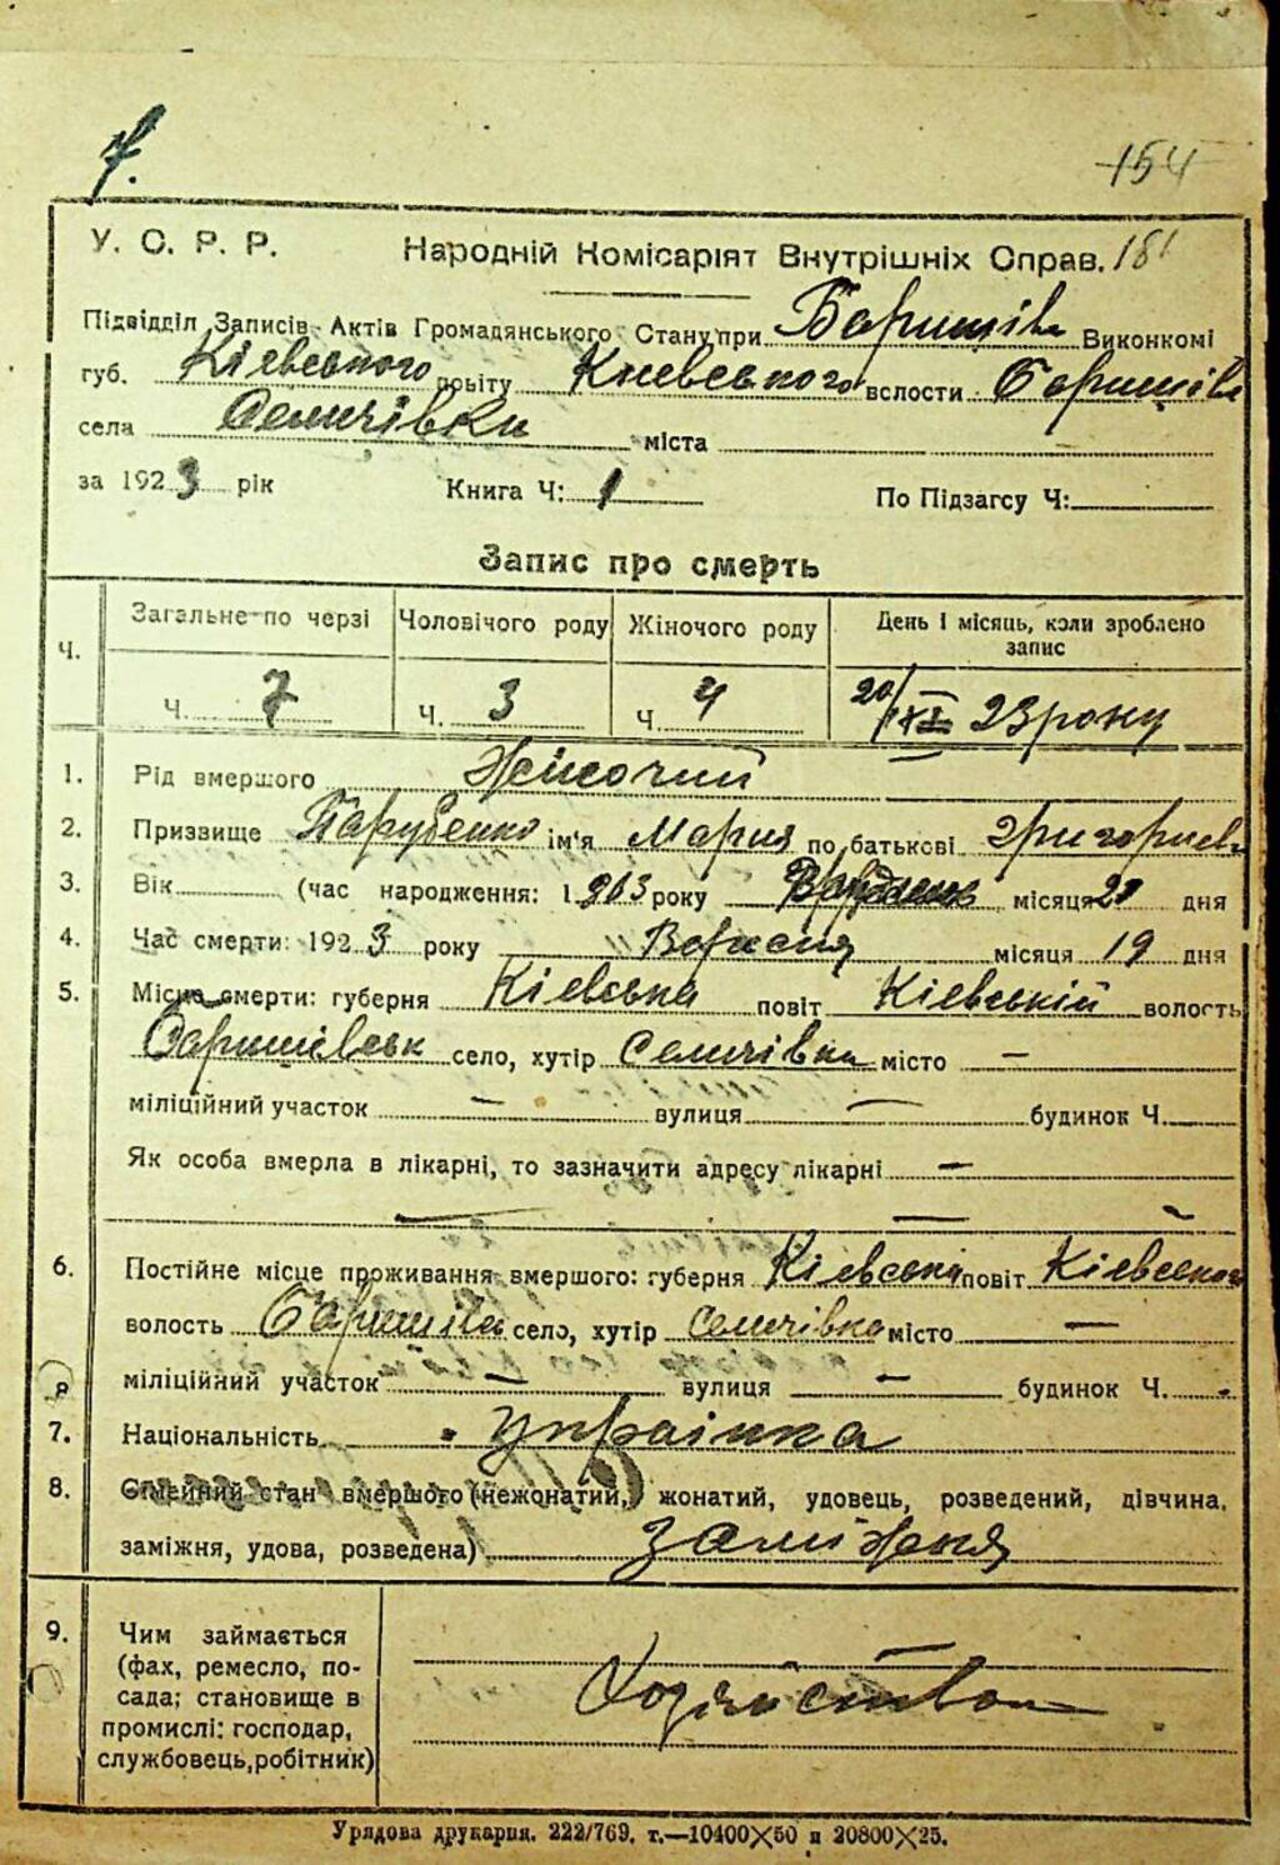 7.
154
У. С. Р. Р. Народній Комісаріят Внутрішніх Справ. 181
Підвідділ Записів Актів Громадянського Стану при Баришів Виконкомі
губ. Кієвського повіту Киевського вслости Баришів
села Селичівки міста
за 1923 рік Книга Ч: 1 По Підзагсу Ч:
Запис про смерть
Загальне по черзі Чоловічого роду Жіночого роду День і місяць, коли зроблено запис
Ч.
Ч. 7 Ч. 3 Ч. 4 20/XI 23 року
1. Рід вмершого Жіночий
2. Призвище Парубенко ім'я Мария по батькові Григориев
3. Вік (час народження: 1903 року місяця 20 дня
4. Час смерти: 1923 року Вересня місяця 19 дня
5. Місце смерти: губерня Кієвська повіт Кіевській волость
Баришівськ село, хутір Селичівка місто —
міліційний участок — вулиця — будинок Ч.
Як особа вмерла в лікарні, то зазначити адресу лікарні —
6. Постійне місце проживання вмершого: губерня Кієвська повіт Кієвського
волость Баришівка село, хутір Селичівка місто —
міліційний участок — вулиця — будинок Ч.
7. Національність Украінка
8. Сімейний стан вмершого (нежонатий, жонатий, удовець, розведений, дівчина,
заміжня, удова, розведена) Заміжня
9. Чим займається
(фах, ремесло, по-
сада; становище в
промислі: господар,
службовець, робітник)
Хозяйством
Урядова друкарня. 222/769. т.—10400×50 и 20800×25.